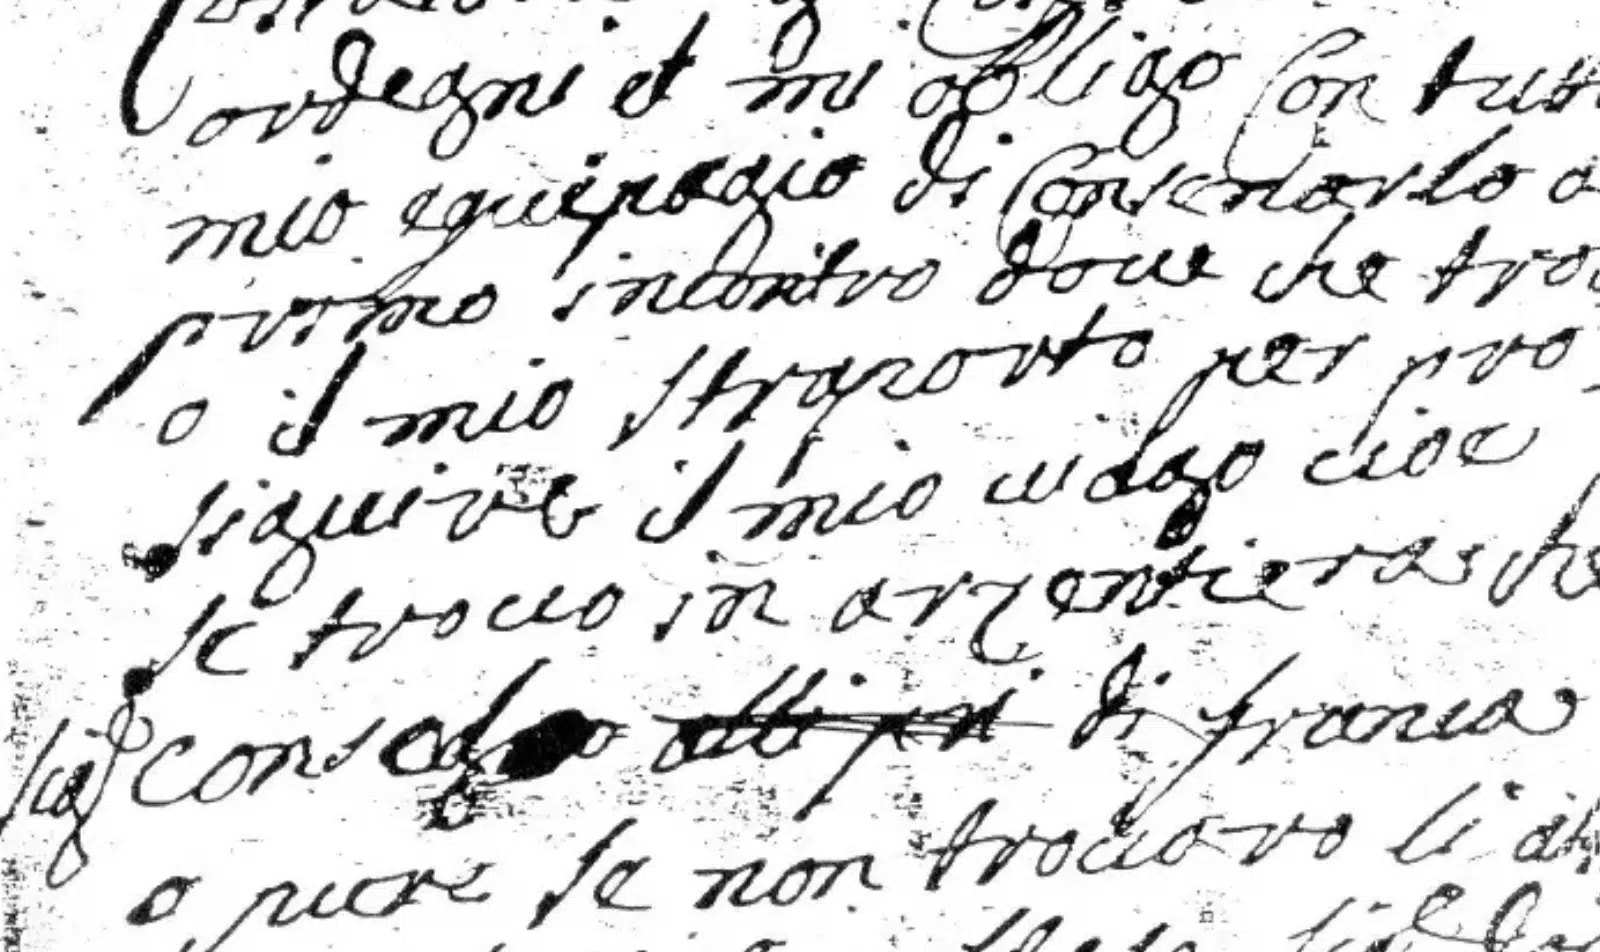 ordegni et mi obligo con tutt
mio equipagio di conservarlo a
primo incontro doue che tro
o il mio straporto per pro
siguire il mio uiago cioe
se trouo in arzentieras che
sigr consolo alli pri di francia
o pure se non trouaro li